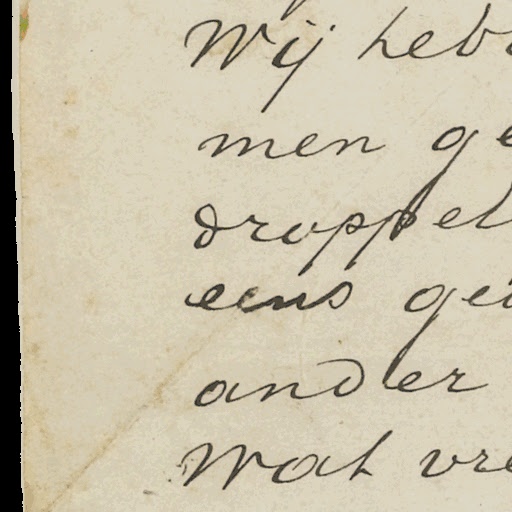 Wij heb
men ge
droppel
eens ge
ander
Wat vre